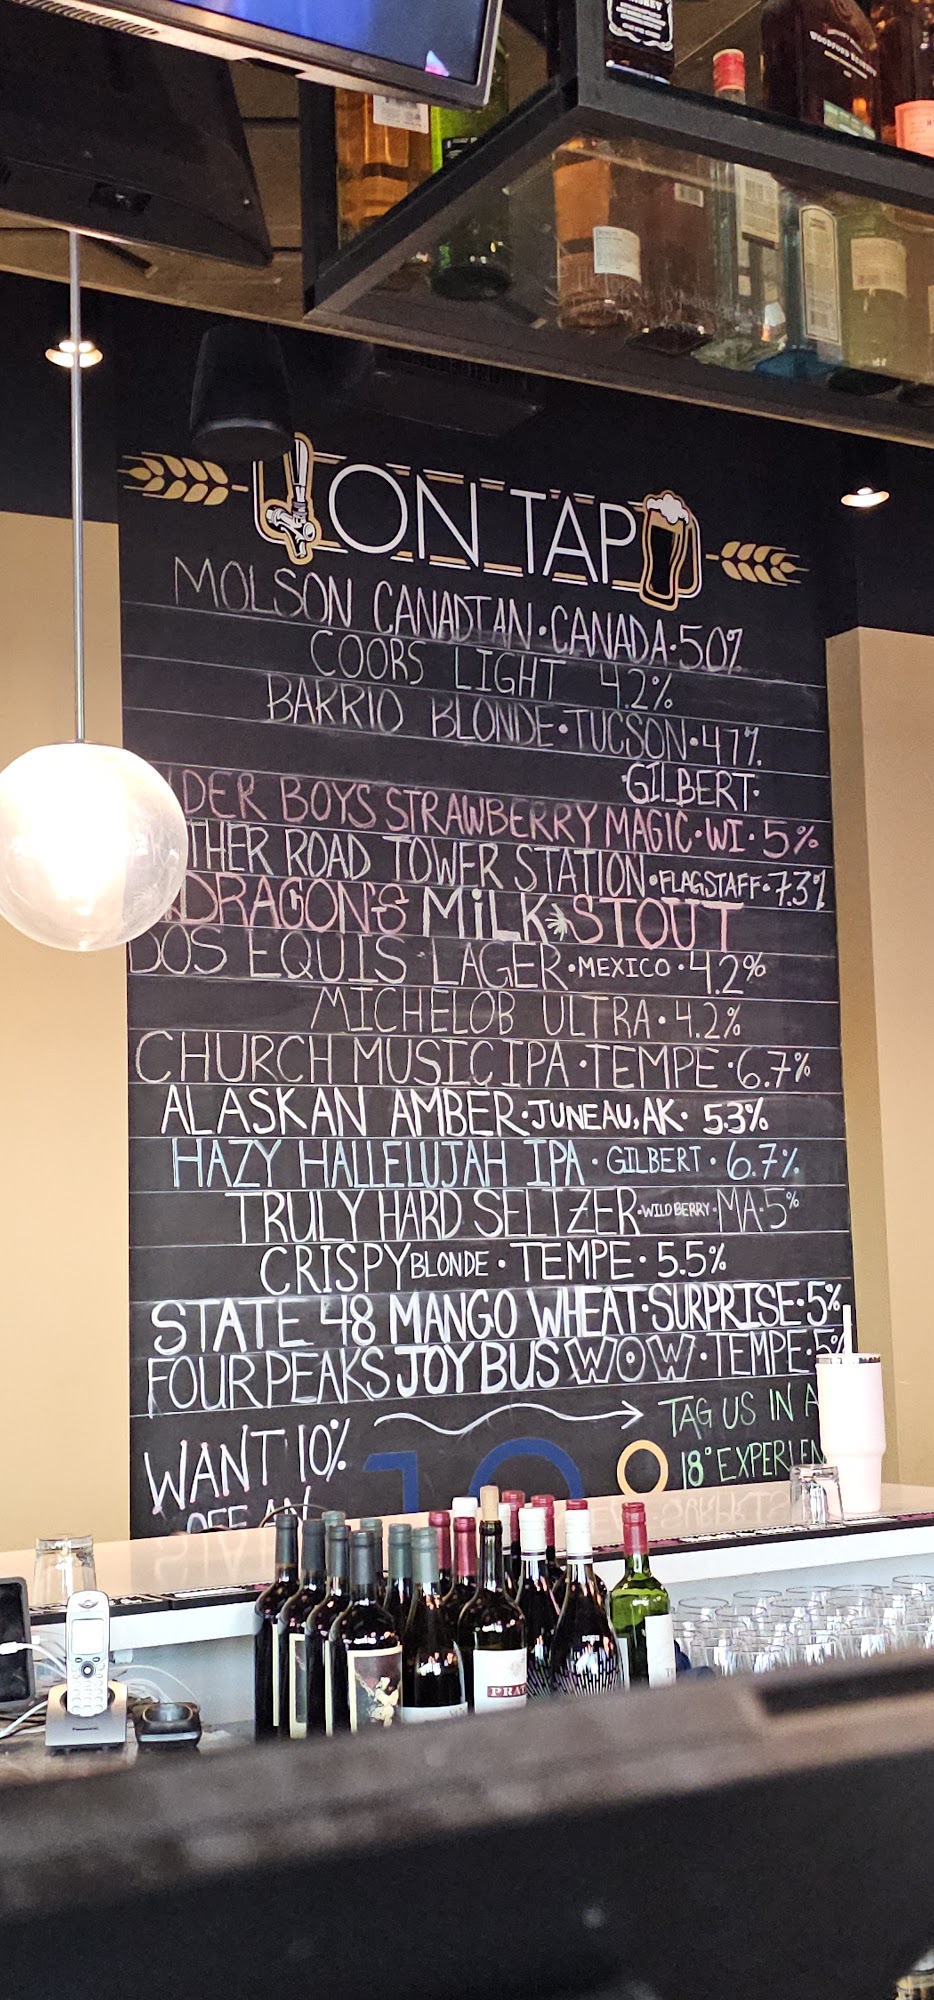 WOODFORD RESERVE
ON TAP
MOLSON CANADIAN • CANADA • 5.0%
COORS LIGHT 4.2%
BARRIO BLONDE • TUCSON • 4.7%
•GILBERT•
DER BOYS STRAWBERRY MAGIC • WI • 5%
THER ROAD TOWER STATION • FLAGSTAFF • 7.3%
DRAGON'S MiLK STOUT
DOS EQUIS LAGER • MEXICO • 4.2%
MICHELOB ULTRA • 4.2%
CHURCH MUSIC IPA • TEMPE • 6.7%
ALASKAN AMBER • JUNEAU, AK • 5.3%
HAZY HALLELUJAH IPA • GILBERT • 6.7%
TRULY HARD SELTZER • WILD BERRY • MA • 5%
CRISPY BLONDE • TEMPE • 5.5%
STATE 48 MANGO WHEAT • SURPRISE • 5%
FOUR PEAKS JOY BUS WOW • TEMPE • 5%
WANT 10%
OFF AN
TAG US IN A
18° EXPERIEN
Panasonic